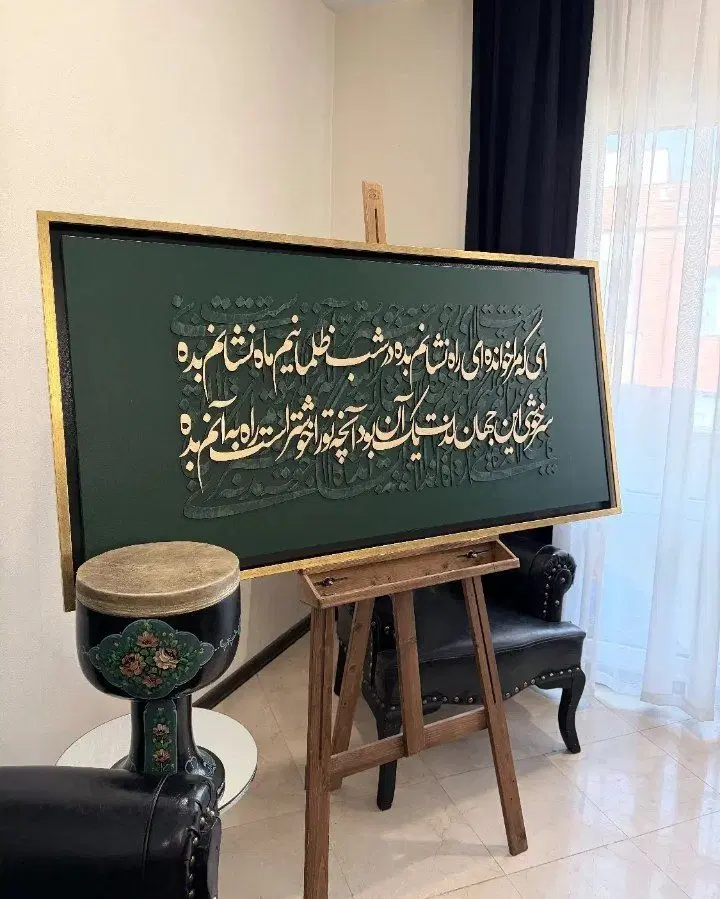 ای که مرا خوانده‌ای راه نشانم بده در شب ظلمانیم ماه نشانم بده
سرخوشی این جهان لذت یک آن بود آنچه تو را خوشتر است راه به آنم بده